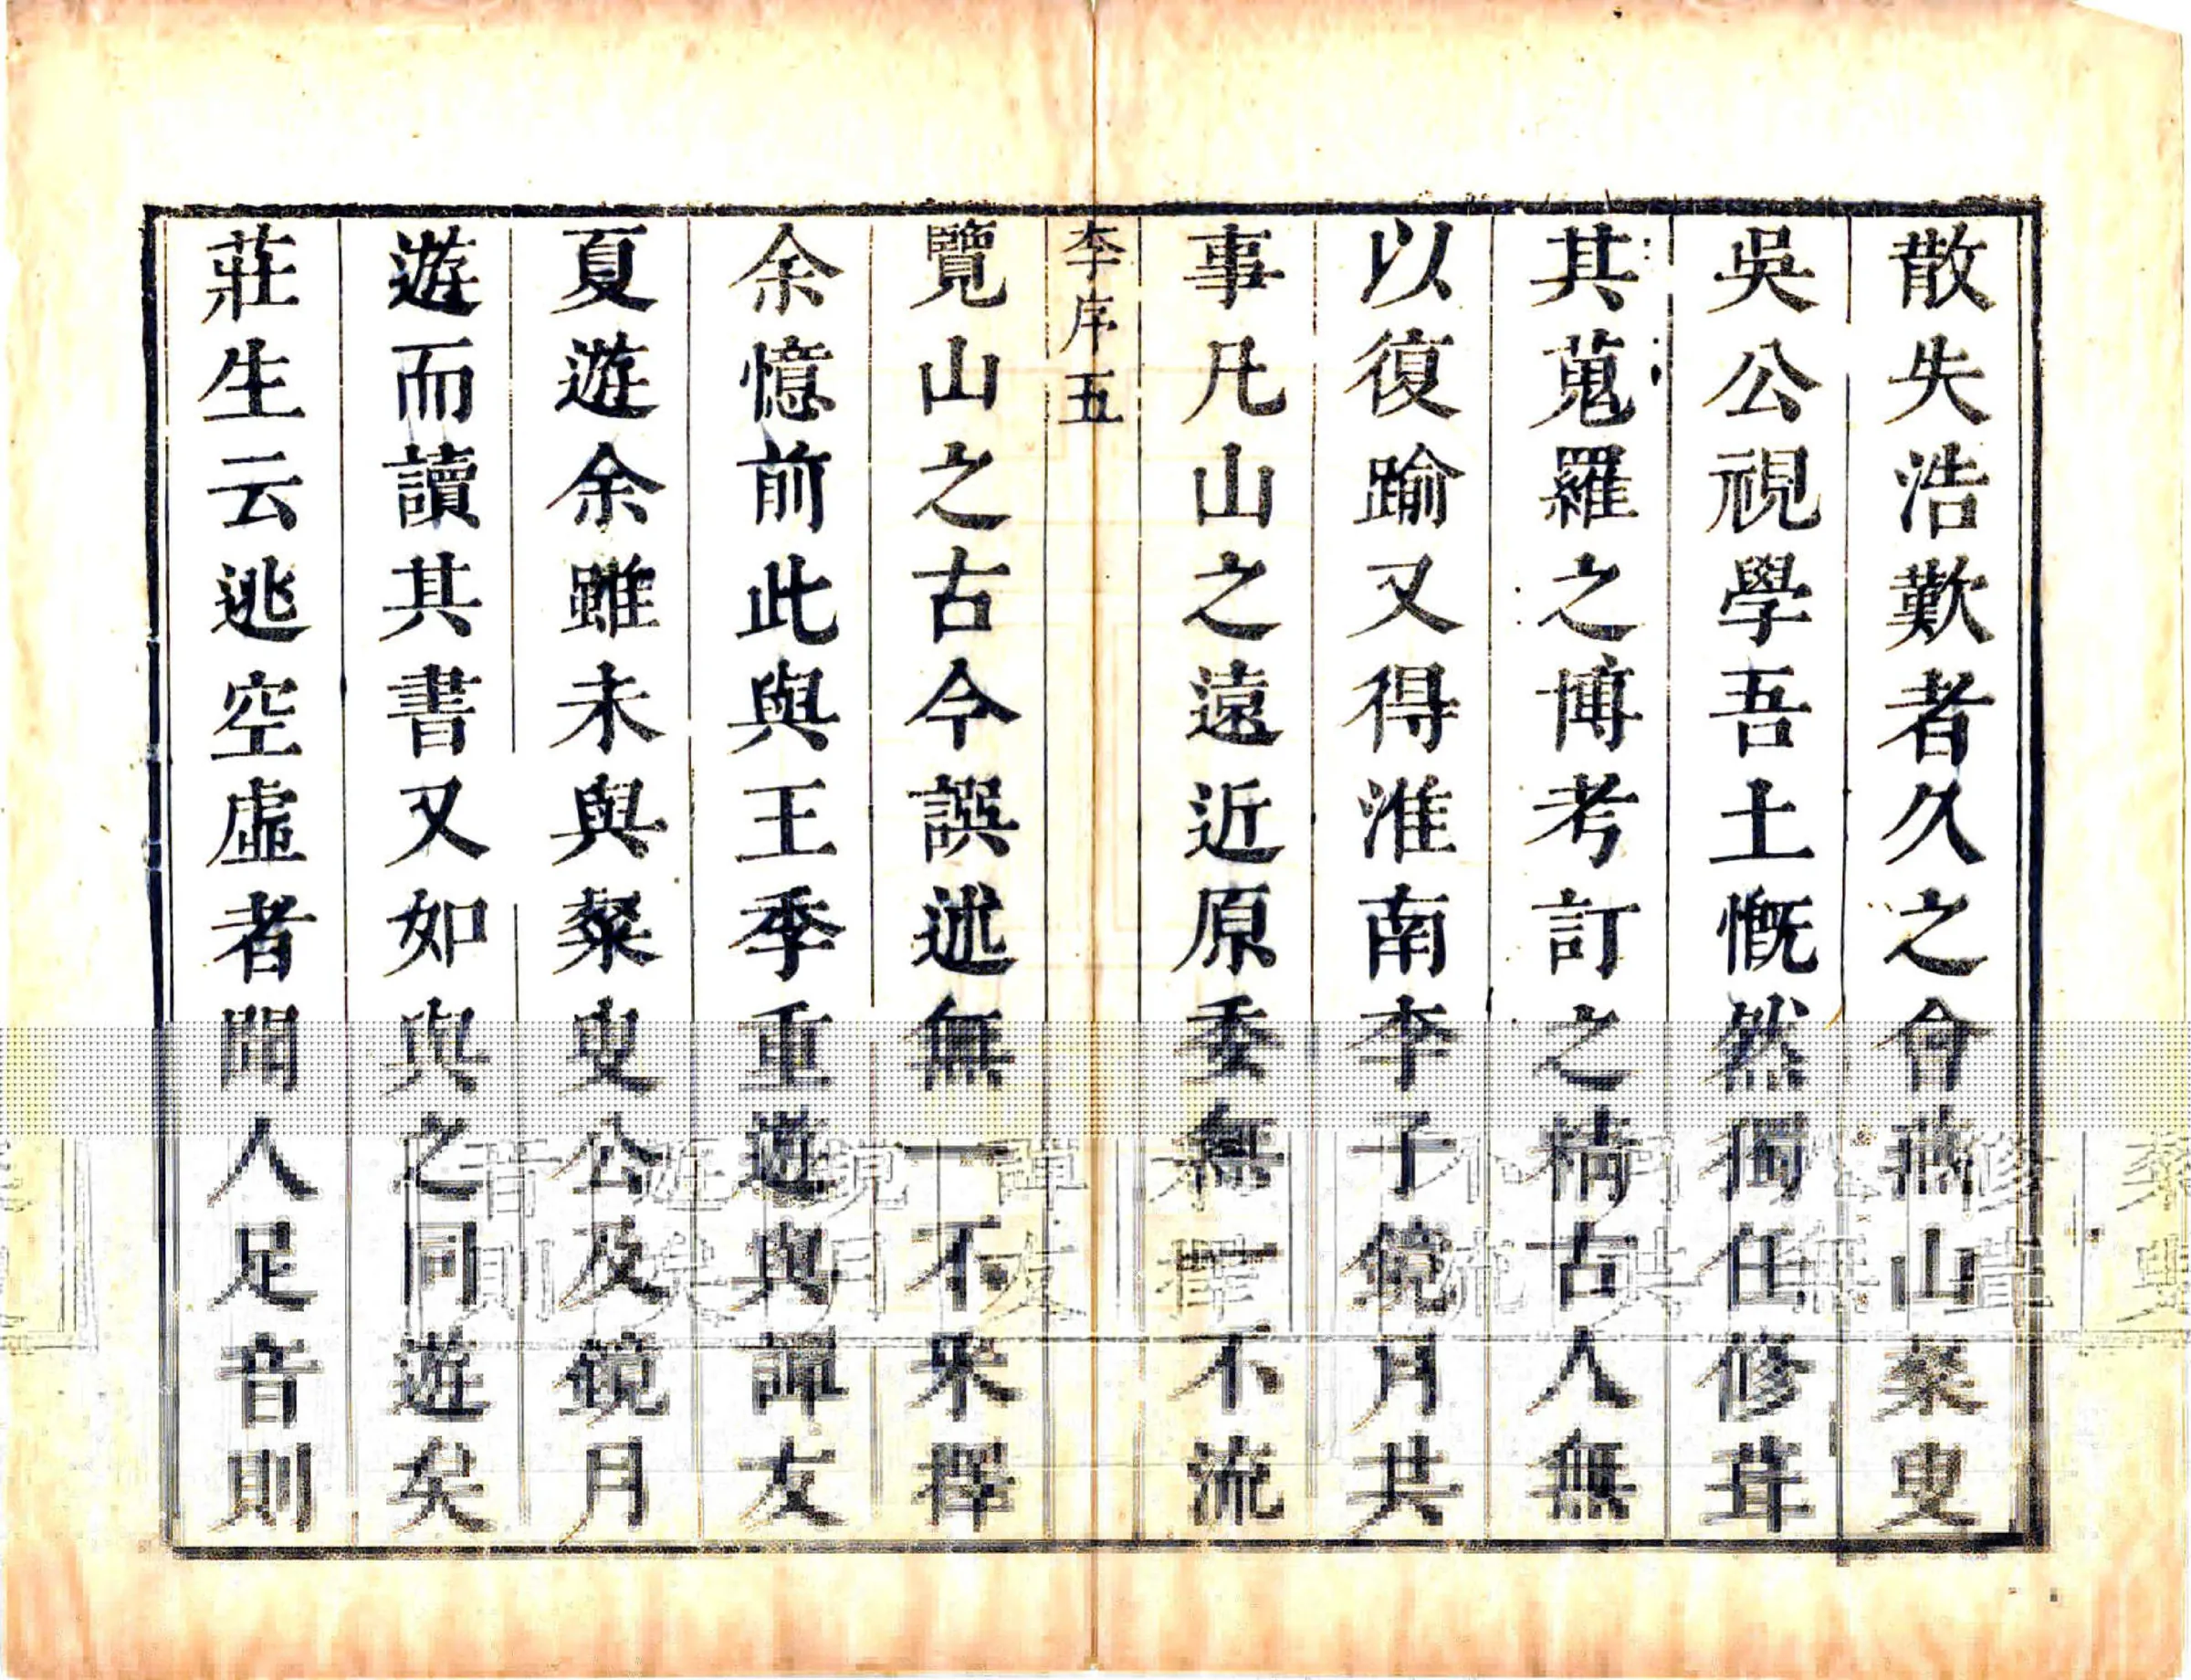 散失浩歎者久之會燕山粲叟
吳公視學吾土慨然獨任修葺
其蒐羅之博考訂之精古人無
以復踰又得淮南李子鏡月共
事凡山之遠近原委無一不流
李序五
覽山之古今譔述無一不釆擇
余憶前此與王季重遊與譚友
夏遊余雖未與粲叟公及鏡月
遊而讀其書又如與之同遊矣
莊生云逃空虛者聞人足音則